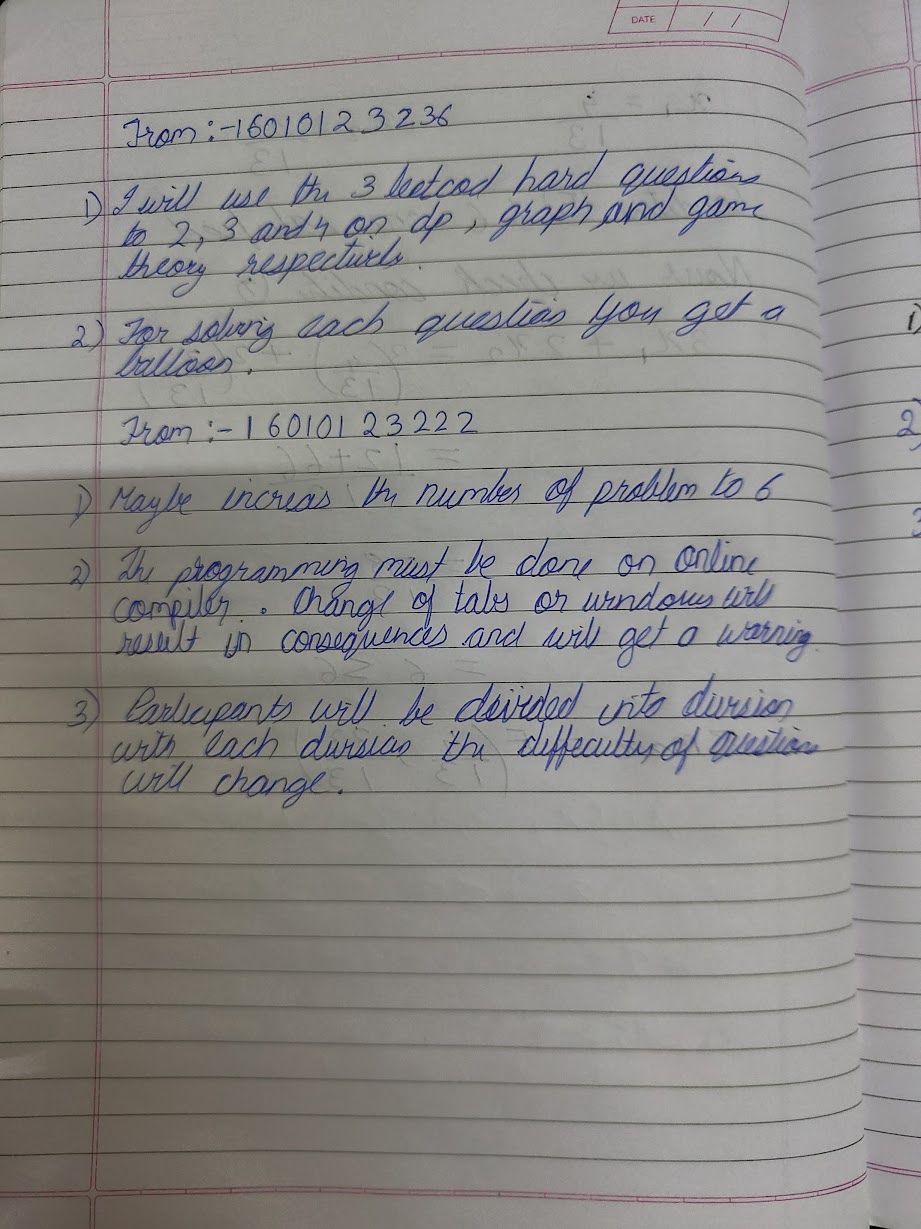 DATE / /
From :- 16010123236
1) I will use the 3 leetcod hard questions
to 2, 3 and 4 on dp, graph and game
theory respectively.
2) For solving each question you get a
balloon.
From :- 16010123222
1) Maybe increas the number of problem to 6
2) The programming must be done on online
compiler. Change of tabs or windows will
result in consequences and will get a warning.
3) Participants will be divided into division
with each division the difficulty of question
will change.
i)
2)
3